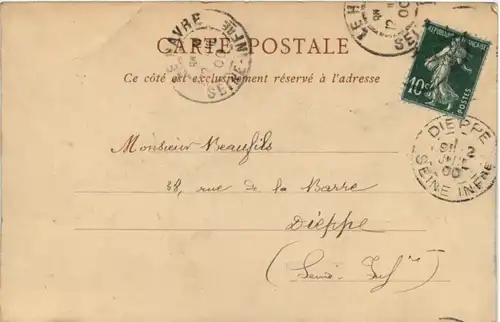 CARTE POSTALE
Ce côté est exclusivement réservé à l'adresse
LE HAVRE
SEINE-INFRE
LE H
SEI
REPUBLIQUE FRANÇAISE
10c
POSTES
DIEPPE
SEINE INFRE
Monsieur Beaufils
38, rue de la Barre
Dieppe
(Seine Infre)